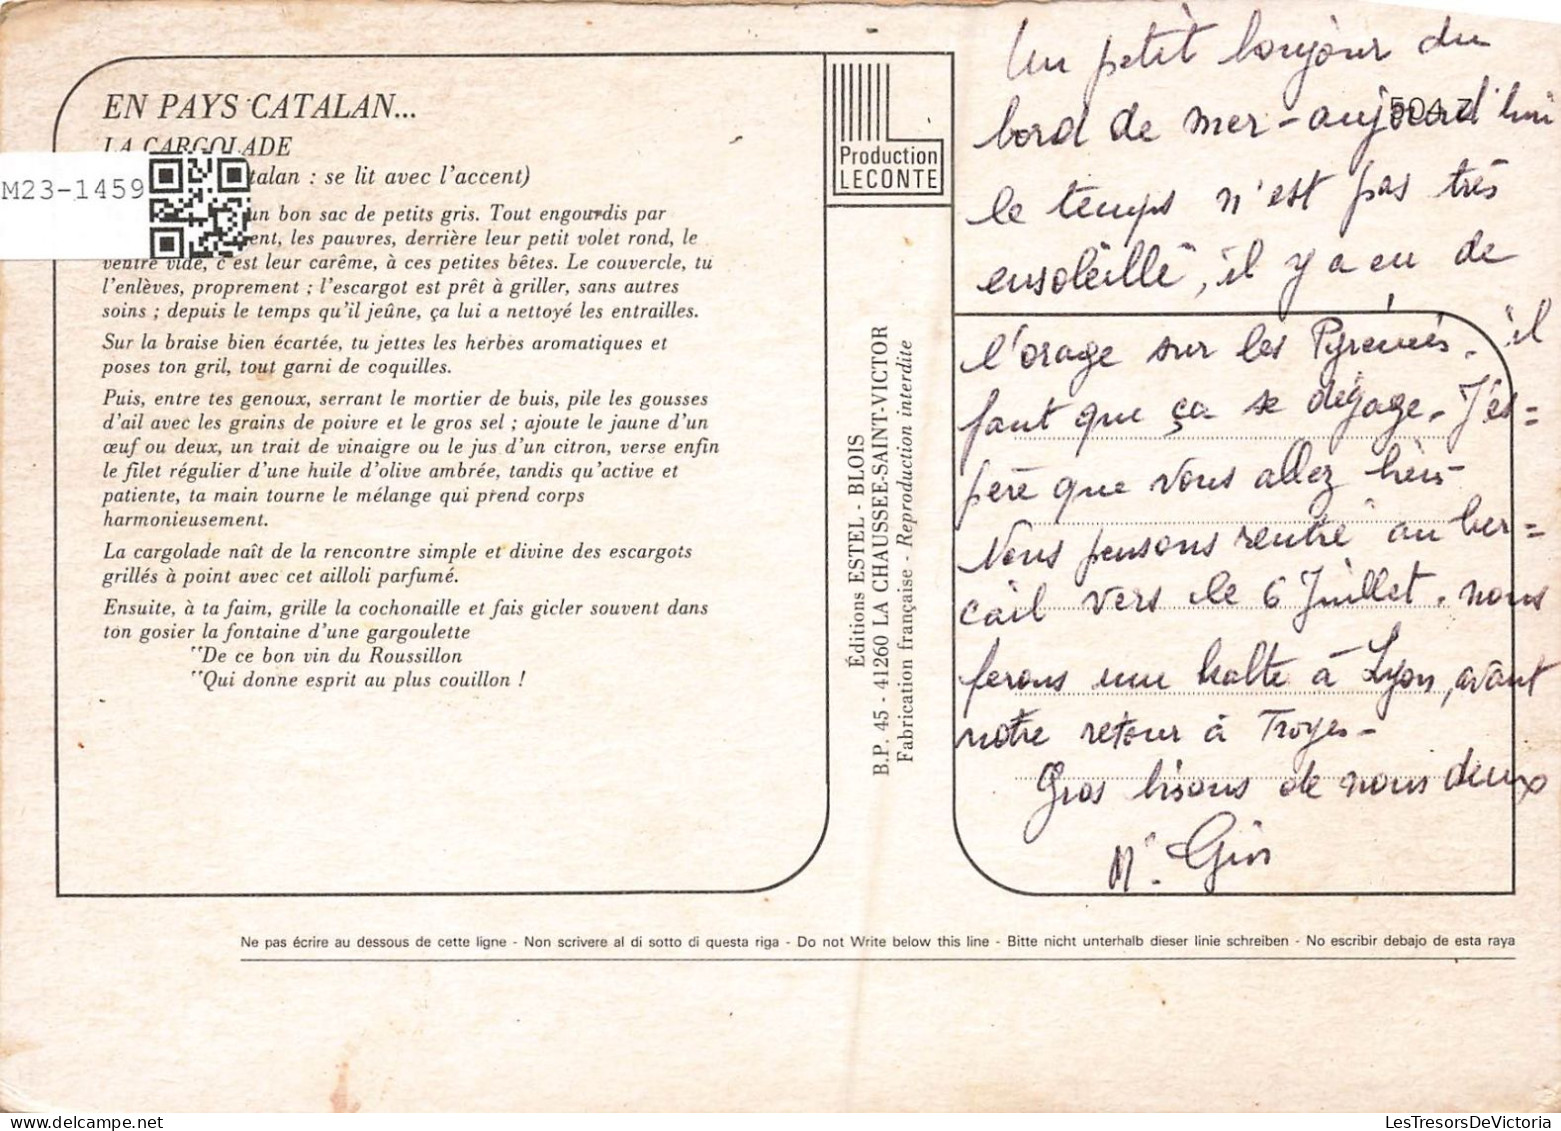 EN PAYS CATALAN...
LA CARGOLADE
talan : se lit avec l'accent)
un bon sac de petits gris. Tout engourdis par
ent, les pauvres, derrière leur petit volet rond, le
ventre vide, c'est leur carême, à ces petites bêtes. Le couvercle, tu
l'enlèves, proprement ; l'escargot est prêt à griller, sans autres
soins ; depuis le temps qu'il jeûne, ça lui a nettoyé les entrailles.
Sur la braise bien écartée, tu jettes les herbes aromatiques et
poses ton gril, tout garni de coquilles.
Puis, entre tes genoux, serrant le mortier de buis, pile les gousses
d'ail avec les grains de poivre et le gros sel ; ajoute le jaune d'un
œuf ou deux, un trait de vinaigre ou le jus d'un citron, verse enfin
le filet régulier d'une huile d'olive ambrée, tandis qu'active et
patiente, ta main tourne le mélange qui prend corps
harmonieusement.
La cargolade naît de la rencontre simple et divine des escargots
grillés à point avec cet ailloli parfumé.
Ensuite, à ta faim, grille la cochonaille et fais gicler souvent dans
ton gosier la fontaine d'une gargoulette
"De ce bon vin du Roussillon
"Qui donne esprit au plus couillon !
M23-1459
Production
LECONTE
Éditions ESTEL - BLOIS
B.P. 45 - 41260 LA CHAUSSEE-SAINT-VICTOR
Fabrication française - Reproduction interdite
Un petit bonjour du
bord de mer - aujourd'hui
le temps n'est pas très
ensoleillé, il y a eu de
l'orage sur les Pyrénées. il
faut que ça se dégage. J'es=
père que vous allez bien -
Nous pensons rentré au ber=
cail vers le 6 Juillet. nous
ferons une halte à Lyon, avant
notre retour à Troyes -
Gros bisous de nous deux
Ne pas écrire au dessous de cette ligne - Non scrivere al di sotto di questa riga - Do not Write below this line - Bitte nicht unterhalb dieser linie schreiben - No escribir debajo de esta raya
LesTresorsDeVictoria